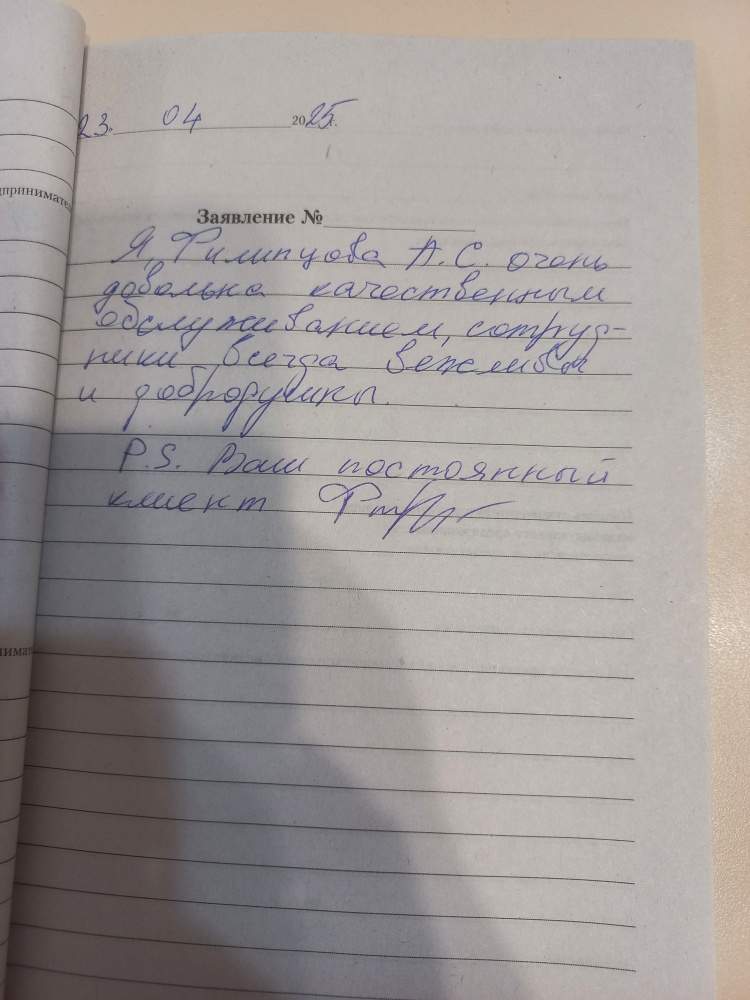 дпринимате
нимате
23. 04 2025г.
Заявление №
Я, Филипцова А.С. очень
довольна качественным
обслуживанием, сотруд-
ники всегда вежливы
и добродушны.
P.S. Ваш постоянный
клиент